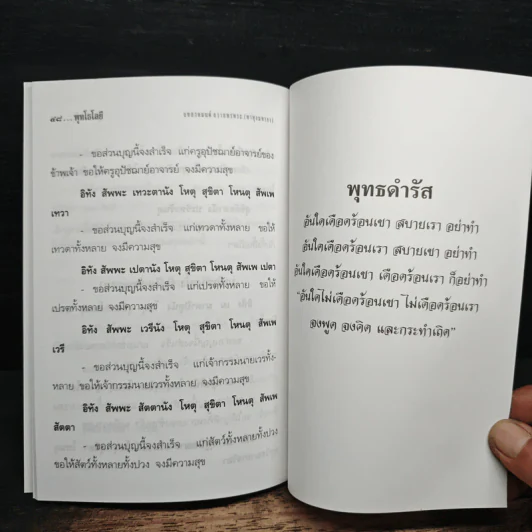 ๘๘ ... พุทโธโลยี
- ขอส่วนบุญนี้จงสำเร็จ แก่ครูอุปัชฌาย์อาจารย์ของ
ข้าพเจ้า ขอให้ครูอุปัชฌาย์อาจารย์ จงมีความสุข
อิทัง สัพพะ เทวะตานัง โหตุ สุขิตา โหนตุ สัพเพ
เทวา
- ขอส่วนบุญนี้จงสำเร็จ แก่เทวดาทั้งหลาย ขอให้
เทวดาทั้งหลาย จงมีความสุข
อิทัง สัพพะ เปตานัง โหตุ สุขิตา โหนตุ สัพเพ เปตา
- ขอส่วนบุญนี้จงสำเร็จ แก่เปรตทั้งหลาย ขอให้
เปรตทั้งหลาย จงมีความสุข
อิทัง สัพพะ เวรีนัง โหตุ สุขิตา โหนตุ สัพเพ
เวรี
- ขอส่วนบุญนี้จงสำเร็จ แก่เจ้ากรรมนายเวรทั้ง-
หลาย ขอให้เจ้ากรรมนายเวรทั้งหลาย จงมีความสุข
อิทัง สัพพะ สัตตานัง โหตุ สุขิตา โหนตุ สัพเพ
สัตตา
- ขอส่วนบุญนี้จงสำเร็จ แก่สัตว์ทั้งหลายทั้งปวง
ขอให้สัตว์ทั้งหลายทั้งปวง จงมีความสุข
พุทธดำรัส
อันใดเดือดร้อนเขา สบายเรา อย่าทำ
อันใดเดือดร้อนเรา สบายเขา อย่าทำ
อันใดเดือดร้อนเขา เดือดร้อนเรา ก็อย่าทำ
"อันใดไม่เดือดร้อนเขา ไม่เดือดร้อนเรา
จงพูด จงคิด และกระทำเถิด"